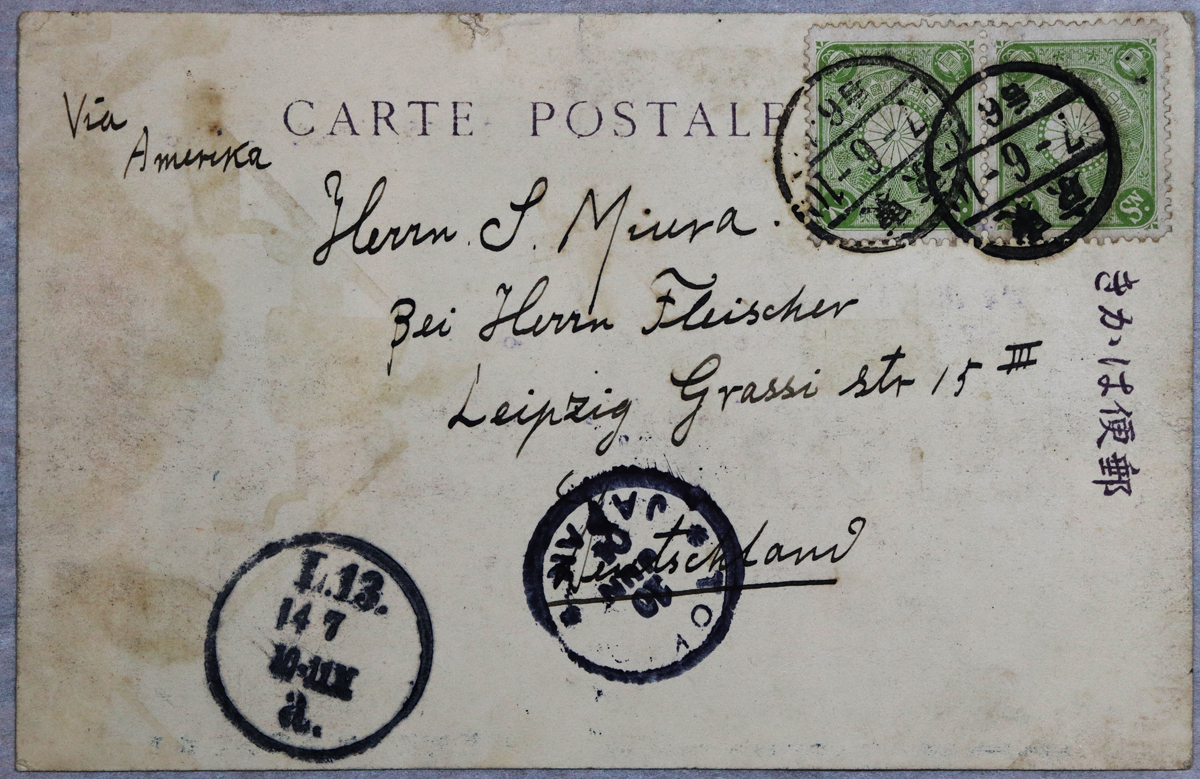 Via
Amerika
CARTE POSTALE
Herrn S. Miura.
Bei Herrn Fleischer
Leipzig Grassi str 15 III
Deutschland
きかは便郵
L.13.
14 7
10-11
a.
JAPAN